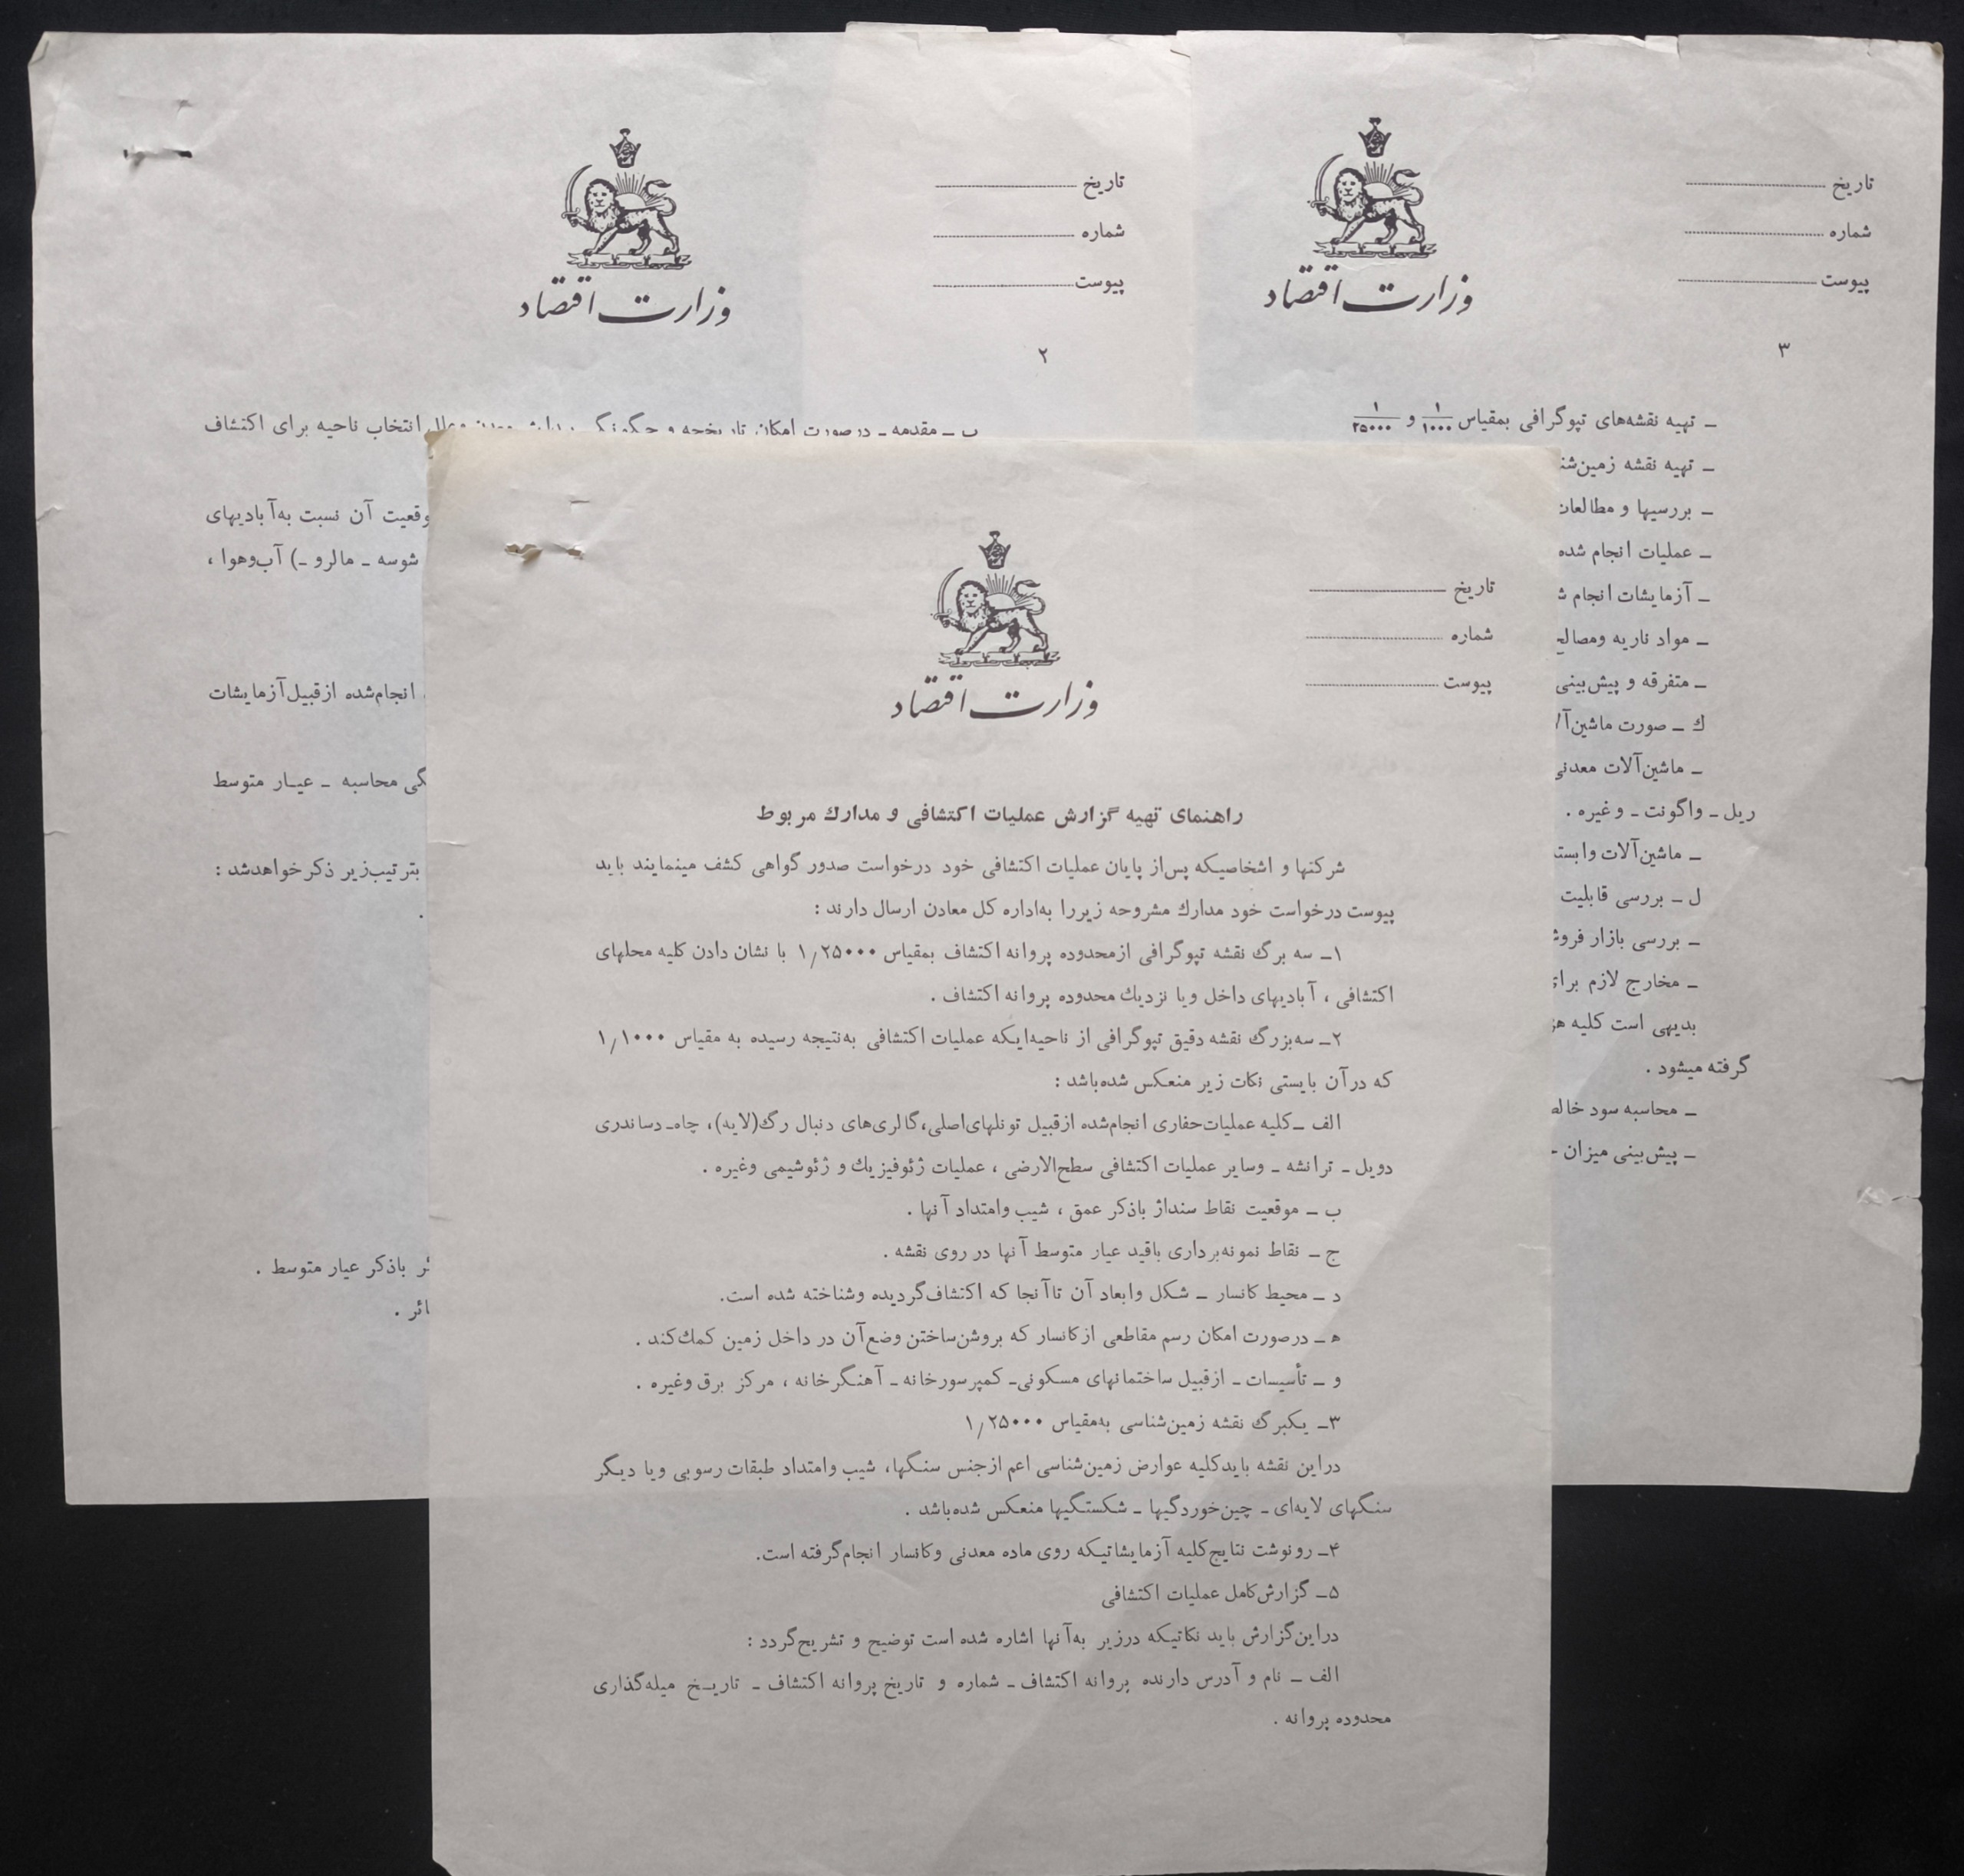 تاریخ
شماره
پیوست
وزارت اقتصاد
راهنمای تهیه گزارش عملیات اکتشافی و مدارك مربوط
شرکتها و اشخاصیکه پس‌از پایان عملیات اکتشافی خود درخواست صدور گواهی کشف مینمایند باید
پیوست درخواست خود مدارك مشروحه زیررا به‌اداره کل معادن ارسال دارند :
۱ـ سه برگ نقشه تپوگرافی ازمحدوده پروانه اکتشاف بمقیاس ۱٫۲۵۰۰۰ با نشان دادن کلیه محلهای
اکتشافی ، آبادیهای داخل ویا نزدیك محدوده پروانه اکتشاف .
۲ـ سه‌بزرگ نقشه دقیق تپوگرافی از ناحیه‌ایکه عملیات اکتشافی به‌نتیجه رسیده به مقیاس ۱٫۱۰۰۰
که درآن بایستی نکات زیر منعکس شده‌باشد :
الف ـ کلیه عملیات‌حفاری انجام‌شده ازقبیل تونلهای‌اصلی،گالری‌های دنبال رگ(لایه)، چاه‌ـ دساندری
دویل ـ ترانشه ـ وسایر عملیات اکتشافی سطح‌الارضی ، عملیات ژئوفیزیك و ژئوشیمی وغیره .
ب ـ موقعیت نقاط سنداژ باذکر عمق ، شیب وامتداد آنها .
ج ـ نقاط نمونه‌برداری باقید عیار متوسط آنها در روی نقشه .
د ـ محیط کانسار ـ شکل وابعاد آن تاآنجا که اکتشاف‌گردیده وشناخته شده است.
ه ـ درصورت امکان رسم مقاطعی ازکانسار که بروشن‌ساختن وضع‌آن در داخل زمین کمك‌کند .
و ـ تأسیسات ـ ازقبیل ساختمانهای مسکونی‌ـ کمپرسورخانه ـ آهنگرخانه ، مرکز برق وغیره .
۳ـ یکبرگ نقشه زمین‌شناسی به‌مقیاس ۱٫۲۵۰۰۰
دراین نقشه بایدکلیه عوارض زمین‌شناسی اعم ازجنس سنگها، شیب وامتداد طبقات رسوبی ویا دیگر
سنگهای لایه‌ای ـ چین‌خوردگیها ـ شکستگیها منعکس شده‌باشد .
۴ـ رونوشت نتایج‌کلیه آزمایشاتیکه روی ماده معدنی وکانسار انجام‌گرفته است.
۵ـ گزارش‌کامل عملیات اکتشافی
دراین‌گزارش باید نکاتیکه درزیر به‌آنها اشاره شده است توضیح و تشریح‌گردد :
الف ـ نام و آدرس دارنده پروانه اکتشاف ـ شماره و تاریخ پروانه اکتشاف ـ تاریخ میله‌گذاری
محدوده پروانه .
تاریخ
شماره
پیوست
وزارت اقتصاد
۲
ب ـ مقدمه ـ درصورت امکان تاریخچه و چگونگی انتخاب ناحیه برای اکتشاف
آن نسبت به‌آبادیهای
شوسه ـ مالرو ـ) آب‌وهوا ،
انجام‌شده ازقبیل‌آزمایشات
محاسبه ـ عیار متوسط
بترتیب‌زیر ذکرخواهدشد :
باذکر عیار متوسط .
تاریخ
شماره
پیوست
وزارت اقتصاد
۳
ـ تهیه نقشه‌های تپوگرافی بمقیاس ۱/۱۰۰۰ و ۱/۲۵۰۰۰
ـ تهیه نقشه
ـ بررسیها و
ـ عملیات انجام شده
ـ آزمایشات انجام
ـ مواد ناریه
ـ متفرقه و پیش‌بینی
ك ـ صورت
ـ ماشین‌آلات معدنی
ریل ـ واگونت ـ وغیره .
ـ ماشین‌آلات
ل ـ بررسی قابلیت
ـ بررسی بازار
ـ مخارج لازم
بدیهی است کلیه
گرفته میشود .
ـ محاسبه سود
ـ پیش‌بینی میزان